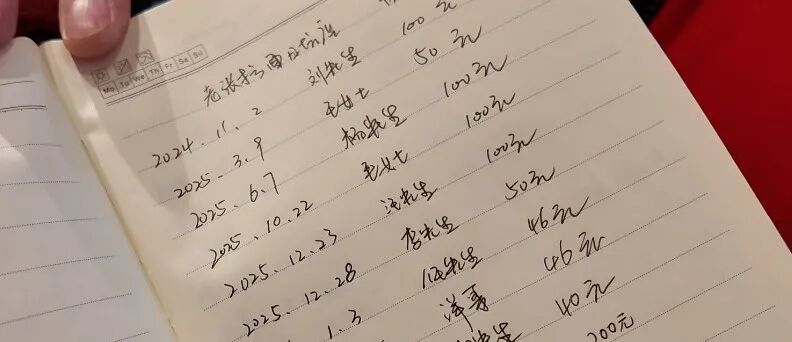 Mo Tu We Th Fr Sa Su
老张
2024.11.2 刘先生 100元
2025.3.9 毛女士 50元
2025.6.7 杨先生 100元
2025.10.22 毛女士 100元
2025.12.23 汪先生 100元
2025.12.28 李先生 50元
1.3 伍先生 46元
46元
先生 40元
200元